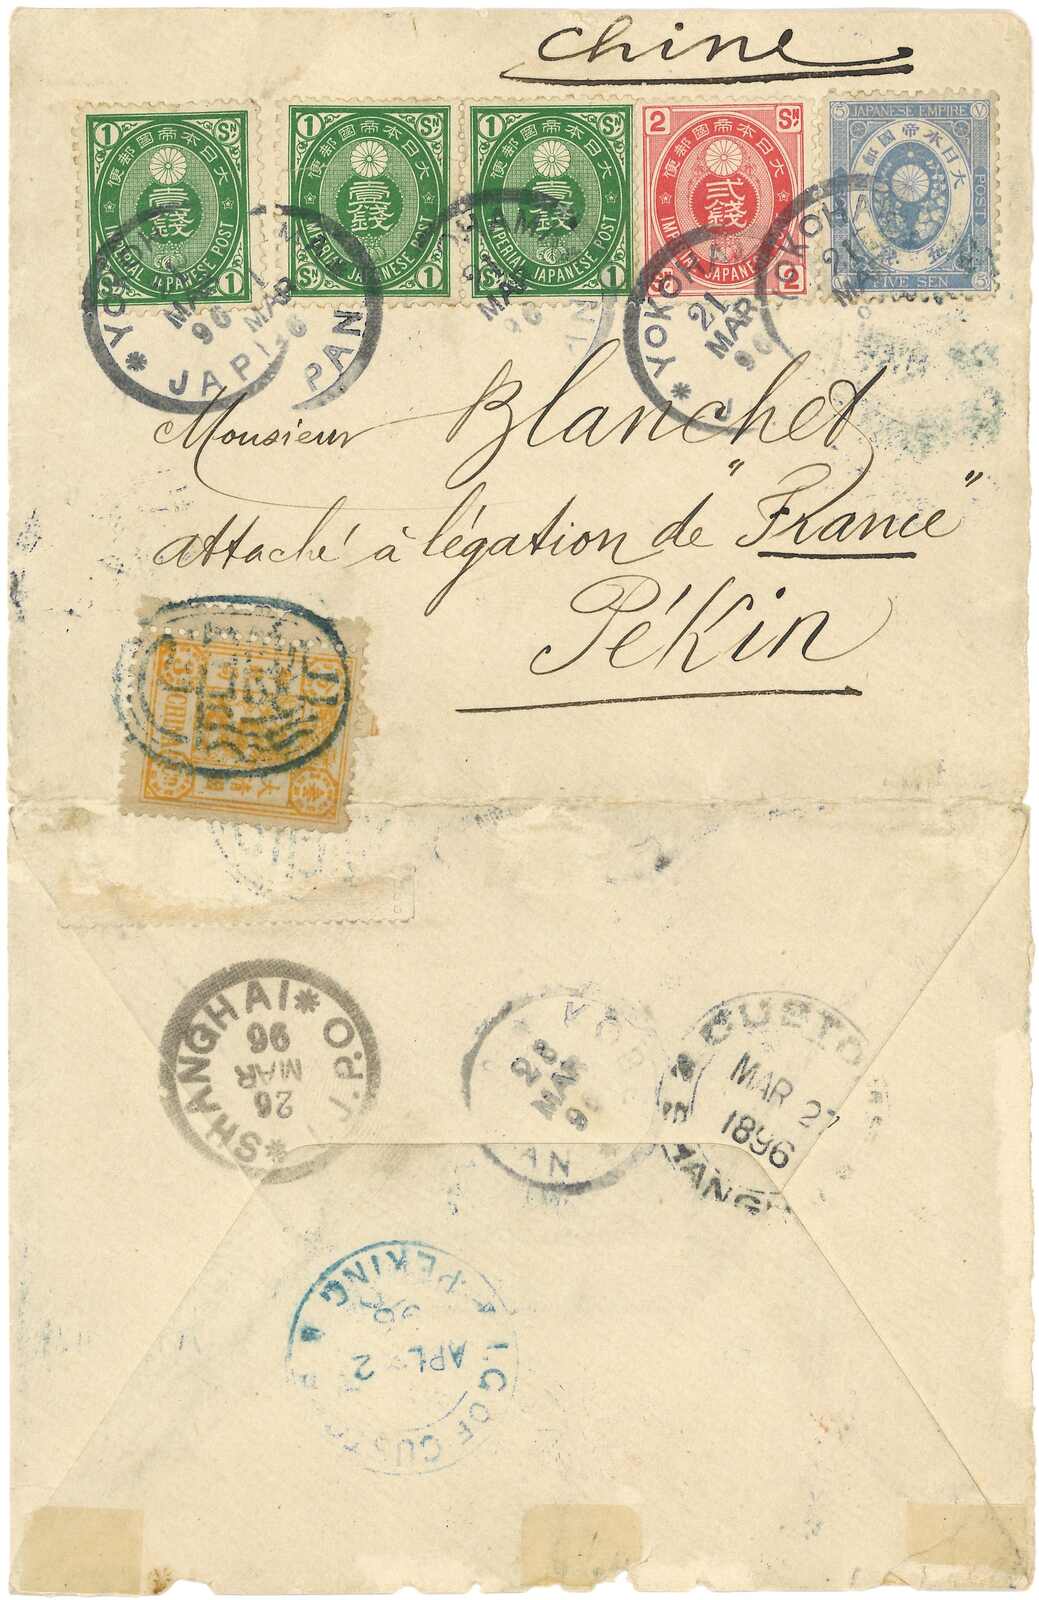 Chine
1 Sn
大日本帝國郵便
壹錢
IMPERIAL JAPANESE POST
Sn 1
1 Sn
大日本帝國郵便
壹錢
IMPERIAL JAPANESE POST
Sn 1
1 Sn
大日本帝國郵便
壹錢
IMPERIAL JAPANESE POST
Sn 1
2 Sn
大日本帝國郵便
貳錢
IMPERIAL JAPANESE POST
Sn 2
5 JAPANESE EMPIRE V
大日本帝國郵
POST
FIVE SEN 5
YOKOHAMA
21 MAR 96
JAPAN
YOKOHAMA
21 MAR 96
Monsieur Blanchet
attaché à légation de "France"
Pékin
CHINA
大清國
壹
SHANGHAI
26 MAR 96
I.J.P.O.
28 MAR 96
AN
CUSTO
MAR 27
1896
I.G OF CUS
PEKING
APL 2
96